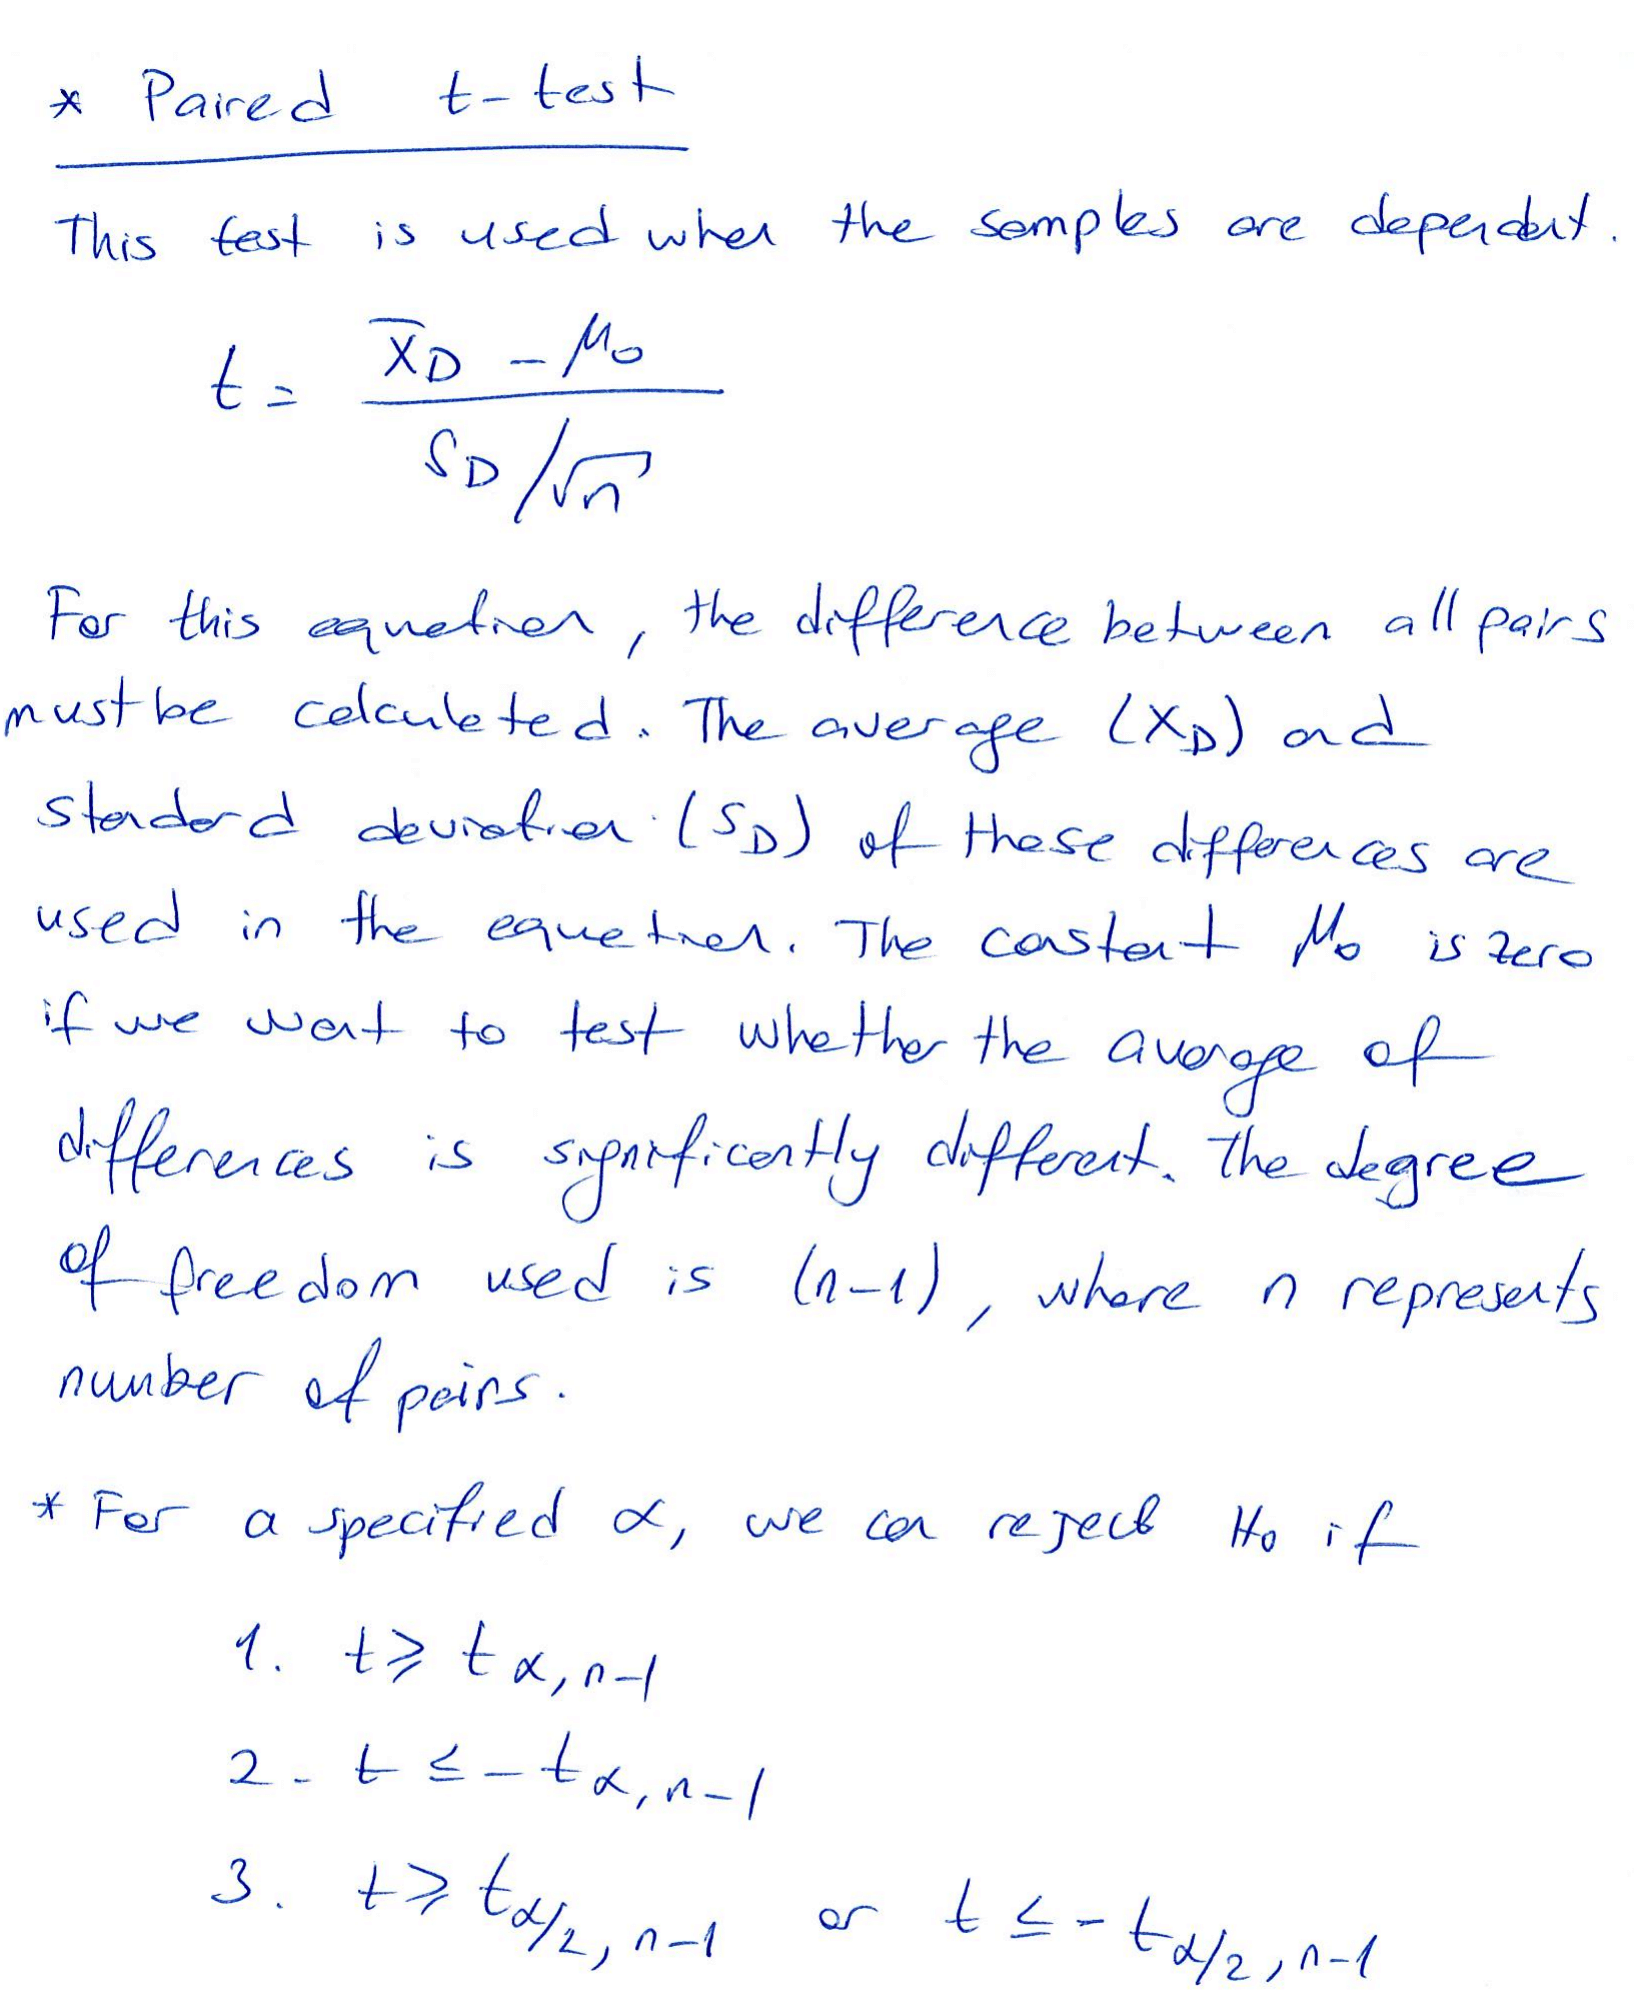 * Paired t-test
This test is used when the samples are dependent.
t = (X̄_D - μ₀) / (S_D/√n)
For this equation, the difference between all pairs
must be calculated. The average (X_D) and
standard deviation (S_D) of these differences are
used in the equation. The constant μ₀ is zero
if we want to test whether the average of
differences is significantly different. The degree
of freedom used is (n-1), where n represents
number of pairs.
* For a specified α, we can reject H₀ if
1. t ≥ t_α,n-1
2. t ≤ -t_α,n-1
3. t ≥ t_α/2,n-1 or t ≤ -t_α/2,n-1